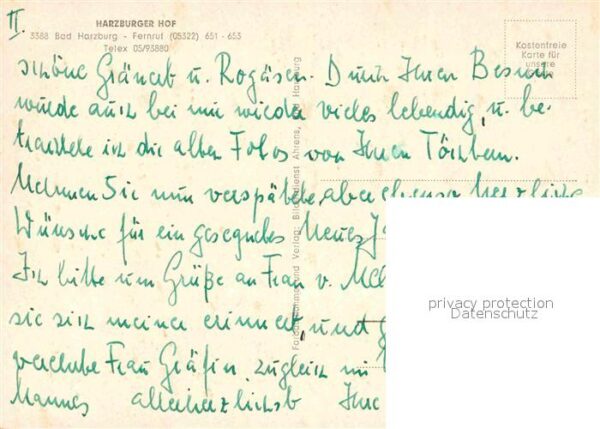 II.
HARZBURGER HOF
3388 Bad Harzburg - Fernruf (05322) 651 - 653
Telex 05/93880
Kostenfreie
Karte für
unsere
schöne Gräneit u. Rogäsen. Durch Ihren Besuch
wurde auch bei mir wieder vieles lebendig, u. be-
trachtete ich die alten Fotos von Ihren Töchtern.
Nehmen Sie nun verspätete, aber ebenso herzliche
Wünsche für ein gesegnetes Neues
Ich bitte um Grüße an Frau v.
sie sich meiner erinnert, und
verehrte Frau Gräfin, zugleich
Mannes allerherzlichst Ihre
Verlag: Bilderdienst Ahrens, Bad Harzburg
privacy protection
Datenschutz